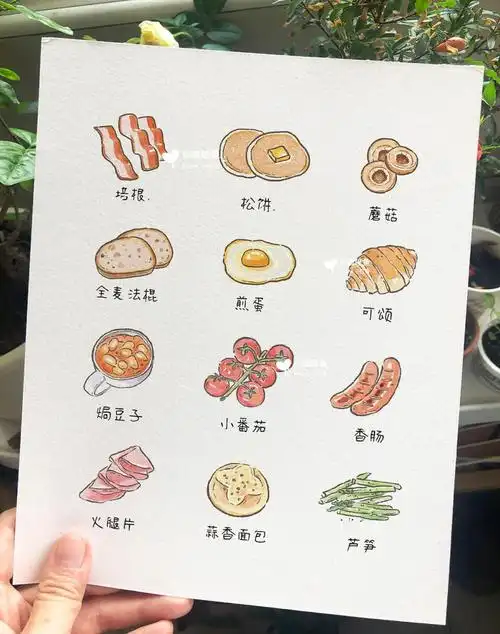 培根.
松饼.
蘑菇
全麦法棍
煎蛋
可颂
焗豆子
小番茄
香肠
火腿片
蒜香面包
芦笋